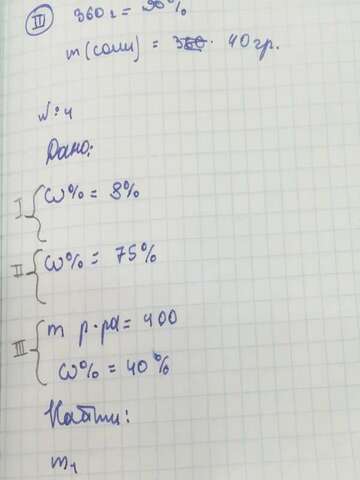 III 360 г = 90%
m (соли) = 40 гр.
№ 4
Дано:
I ω% = 8%
II ω% = 75%
III m р-ра = 400
ω% = 40%
Найти:
m₁